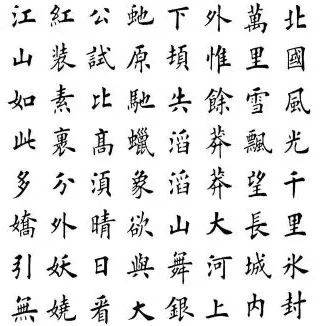 北國風光千里氷封
萬里雪飄望長城内
外惟餘莽莽大河上
下頓失滔滔山舞銀
虵原馳蠟象欲與大
公試比髙湏晴日看
紅装素裹分外妖嬈
江山如此多嬌引無